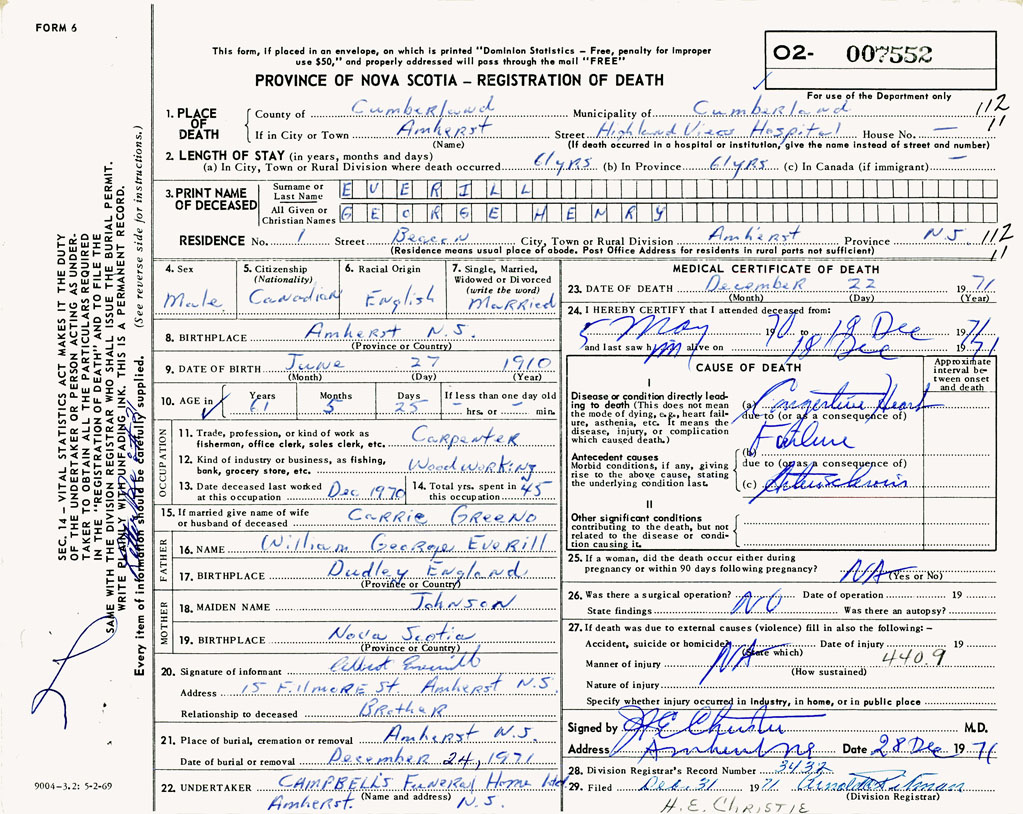 FORM 6
This form, if placed in an envelope, on which is printed "Dominion Statistics – Free, penalty for improper
use $50," and properly addressed will pass through the mail "FREE"
O2- 007552
PROVINCE OF NOVA SCOTIA – REGISTRATION OF DEATH
For use of the Department only
1. PLACE OF DEATH
County of Cumberland Municipality of Cumberland 112
If in City or Town Amherst Street Highland View Hospital House No. — 11
(Name) (If death occurred in a hospital or institution, give the name instead of street and number)
2. LENGTH OF STAY (in years, months and days)
(a) In City, Town or Rural Division where death occurred 61 yrs (b) In Province 61 yrs (c) In Canada (if immigrant) —
3. PRINT NAME OF DECEASED
Surname or Last Name EVERILL
All Given or Christian Names GEORGE HENRY
RESIDENCE No. 1 Street Beacon City, Town or Rural Division Amherst Province N.S 112
(Residence means usual place of abode. Post Office Address for residents in rural parts not sufficient) 11
4. Sex Male
5. Citizenship (Nationality) Canadian
6. Racial Origin English
7. Single, Married, Widowed or Divorced (write the word) Married
8. BIRTHPLACE Amherst N.S.
(Province or Country)
9. DATE OF BIRTH June 27 1910
(Month) (Day) (Year)
10. AGE in Years 61 Months 5 Days 25 If less than one day old – hrs. or – min.
OCCUPATION
11. Trade, profession, or kind of work as
fisherman, office clerk, sales clerk, etc. Carpenter
12. Kind of industry or business, as fishing,
bank, grocery store, etc. Woodworking
13. Date deceased last worked
at this occupation Dec 1970
14. Total yrs. spent in
this occupation 45
15. If married give name of wife
or husband of deceased Carrie Greeno
FATHER
16. NAME William George Everill
17. BIRTHPLACE Dudley England
(Province or Country)
MOTHER
18. MAIDEN NAME Johnson
19. BIRTHPLACE Nova Scotia
(Province or Country)
20. Signature of informant
Address 15 Filmore St. Amherst N.S.
Relationship to deceased Brother
21. Place of burial, cremation or removal Amherst N.S.
Date of burial or removal December 24, 1971
22. UNDERTAKER Campbell's Funeral Home Ltd
(Name and address)
Amherst. N.S.
MEDICAL CERTIFICATE OF DEATH
23. DATE OF DEATH December 22 1971
(Month) (Day) (Year)
24. I HEREBY CERTIFY that I attended deceased from:
5 May 1970 to 18 Dec 1971
and last saw him alive on 18 Dec 1971
CAUSE OF DEATH
Approximate interval between onset and death
I
Disease or condition directly leading to death (This does not mean the mode of dying, e.g., heart failure, asthenia, etc. It means the disease, injury, or complication which caused death.)
(a) Congestive Heart
due to (or as a consequence of)
Failure
Antecedent causes
Morbid conditions, if any, giving rise to the above cause, stating the underlying condition last.
(b)
due to (or as a consequence of)
(c)
II
Other significant conditions
contributing to the death, but not related to the disease or condition causing it.
25. If a woman, did the death occur either during
pregnancy or within 90 days following pregnancy? NA
(Yes or No)
26. Was there a surgical operation? NO Date of operation 19
State findings Was there an autopsy?
27. If death was due to external causes (violence) fill in also the following: –
Accident, suicide or homicide? NA Date of injury 19
(State which) 4409
Manner of injury
(How sustained)
Nature of injury
Specify whether injury occurred in industry, in home, or in public place
Signed by H E Christie M.D.
Address Amherst NS Date 28 Dec 1971
28. Division Registrar's Record Number 3432
29. Filed Dec. 31 1971
(Division Registrar)
H. E. CHRISTIE
SEC. 14 – VITAL STATISTICS ACT MAKES IT THE DUTY
OF THE UNDERTAKER OR PERSON ACTING AS UNDER-
TAKER TO OBTAIN ALL THE PARTICULARS REQUIRED
IN THE "REGISTRATION OF DEATH" AND TO FILE THE
SAME WITH THE DIVISION REGISTRAR WHO SHALL ISSUE THE BURIAL PERMIT.
WRITE PLAINLY WITH UNFADING INK. THIS IS A PERMANENT RECORD.
Every item of information should be carefully supplied. (See reverse side for instructions.)
9004-3.2: 5-2-69